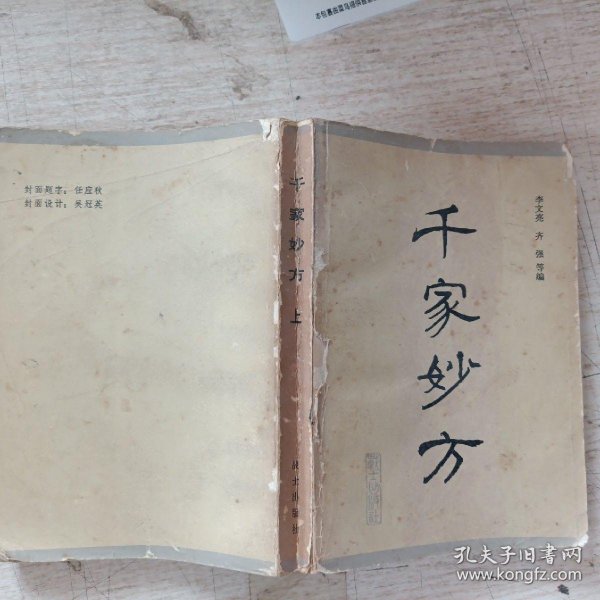 封面题字：任应秋
封面设计：吴冠英
千家妙方 上
战士出版社
千家妙方
李文亮 齐强等编
孔夫子旧书网
www.kongfz.com